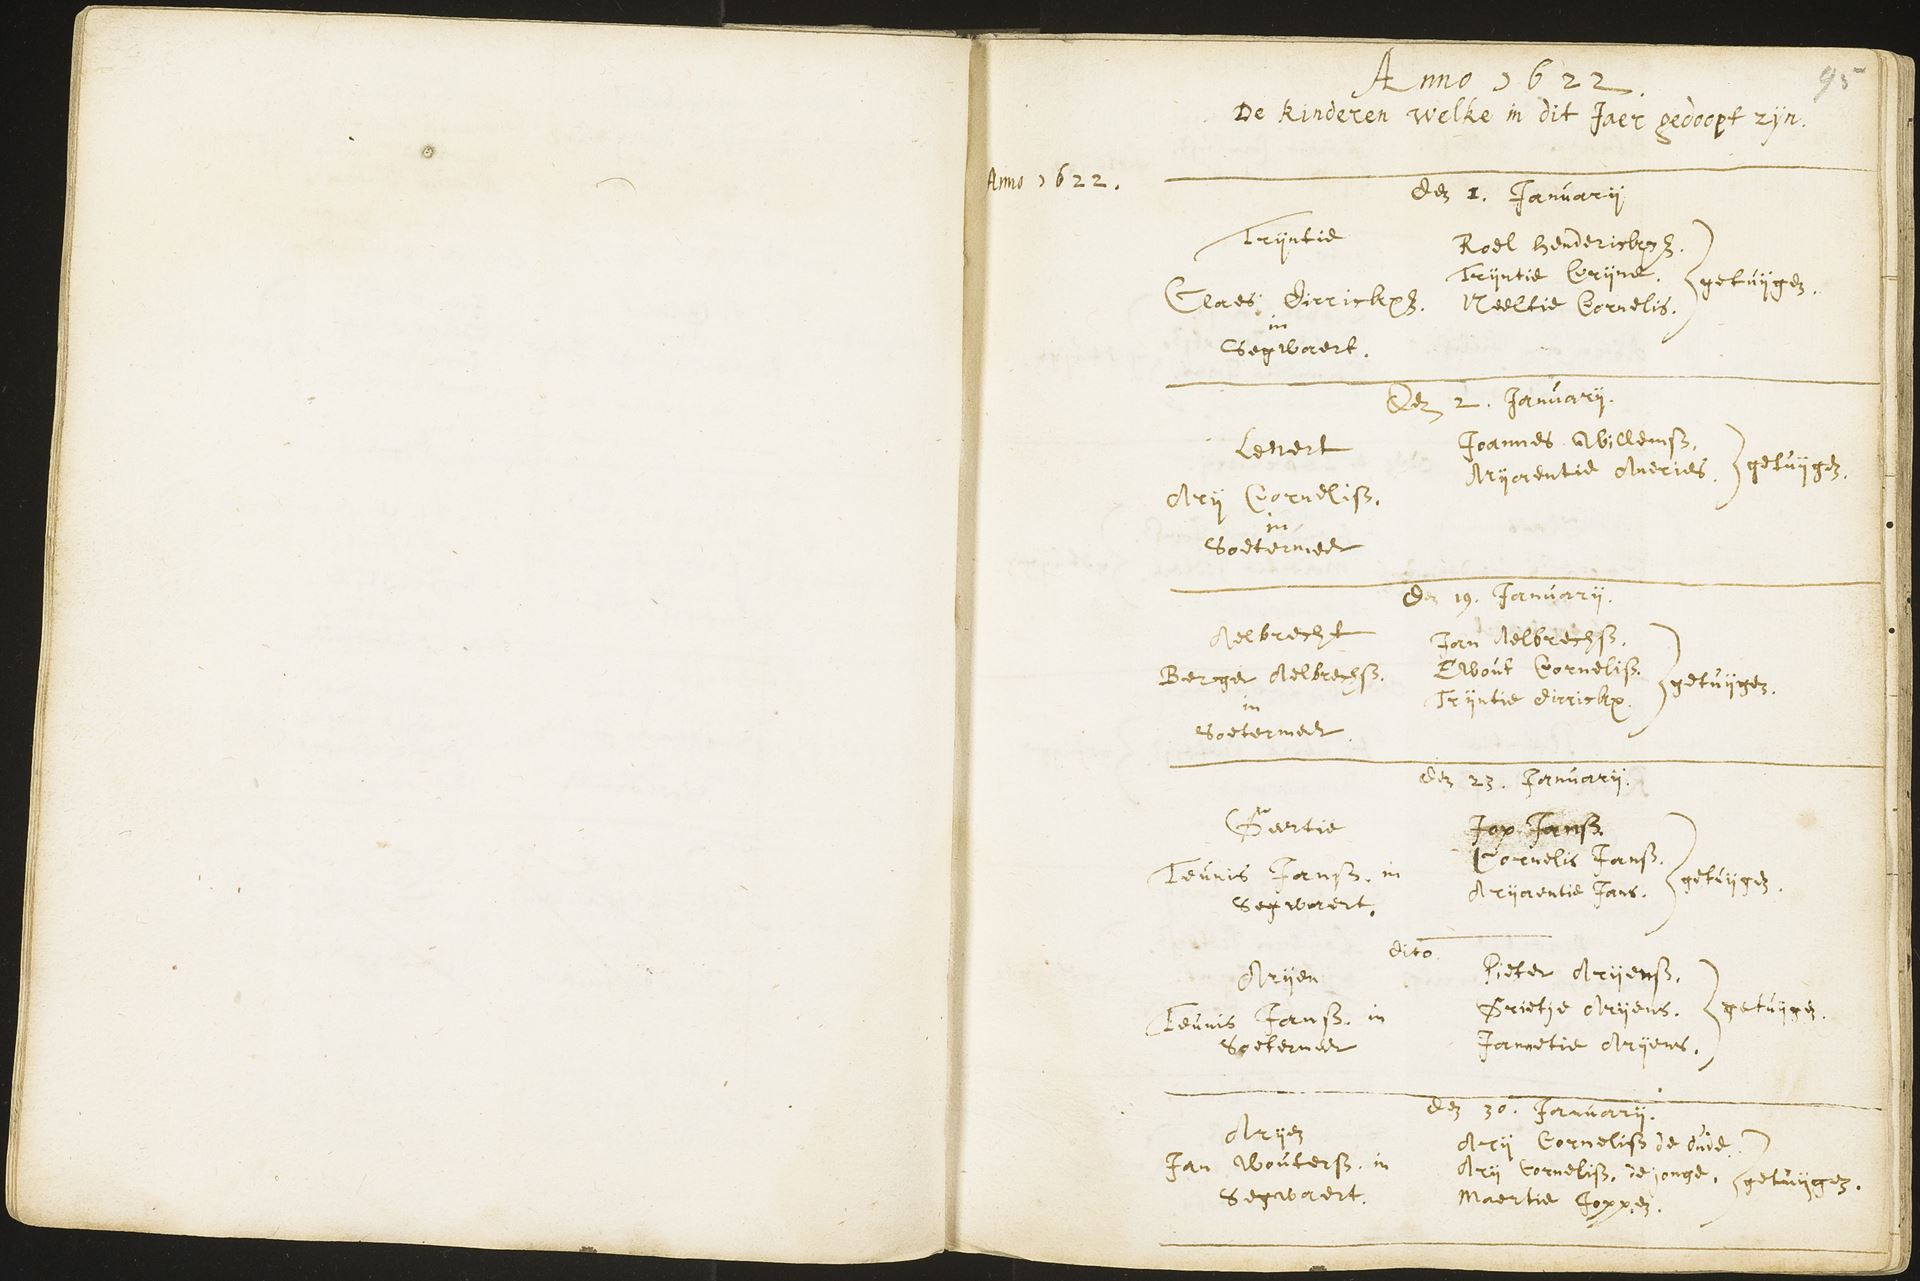 95
Anno 1622.
De kinderen welke in dit Jaer gedoopt zijn.
Anno 1622.
den 1. Januarij
Trijntie
Claes Dirricksz.
in
Segwaert.
Roel Hendericksz.
Trijntie Crijne.
Neeltie Cornelis.
getuijgen.
Den 2. Januarij.
Lenert
Arij Cornelisz.
in
Soetermeer
Joannes Willemsz.
Arijaentie Aneries.
getuijgen.
Den 19. Januarij.
Aelbrecht
Berger Aelbrechsz.
in
Soetermeer.
Jan Aelbrechsz.
Ewout Cornelisz.
Trijntie Dirrickx.
getuijgen.
den 23. Januarij.
Geertie
Teunis Jansz. in
Segwaert.
Jop Jansz.
Cornelis Jansz.
Arijaentie Jans.
getuijgen.
dito
Arijen
Teunis Jansz. in
Soetermeer
Pieter Arijensz.
Grietje Arijens.
Jannetie Arijens.
getuijgen.
den 30. Januarij.
Arijen
Jan Woutersz. in
Segwaert.
Arij Cornelisz de Oude.
Arij Cornelisz. de jonge.
Maertie Joppen.
getuijgen.